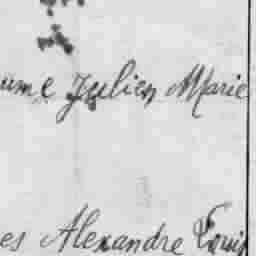 ume Julien Marie
es Alexandre Louis